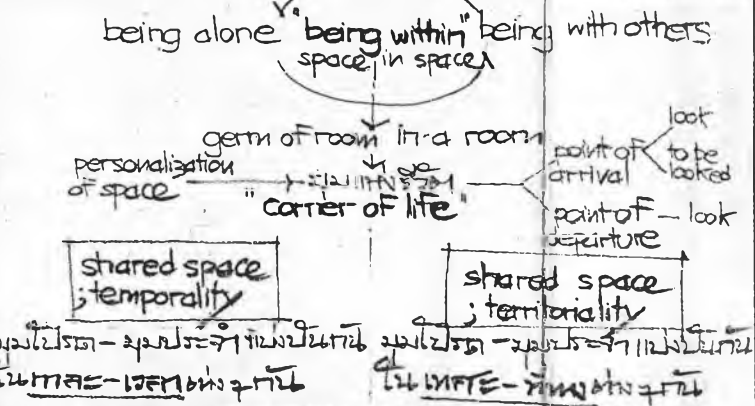 being alone "being within" being with others
space in space
germ of room in a room
personalization
of space
มุมแห่งชีวิต
"corner of life"
point of
arrival
look
to be
looked
point of – look
departure
shared space
; temporality
shared space
; territoriality
มุมโปรด – มุมประจำ แบ่งปันกัน
ใน กาละ – เวลา ต่างๆกัน
มุมโปรด – มุมประจำ แบ่งปันกัน
ใน เทศะ – ที่ทาง ต่างๆกัน